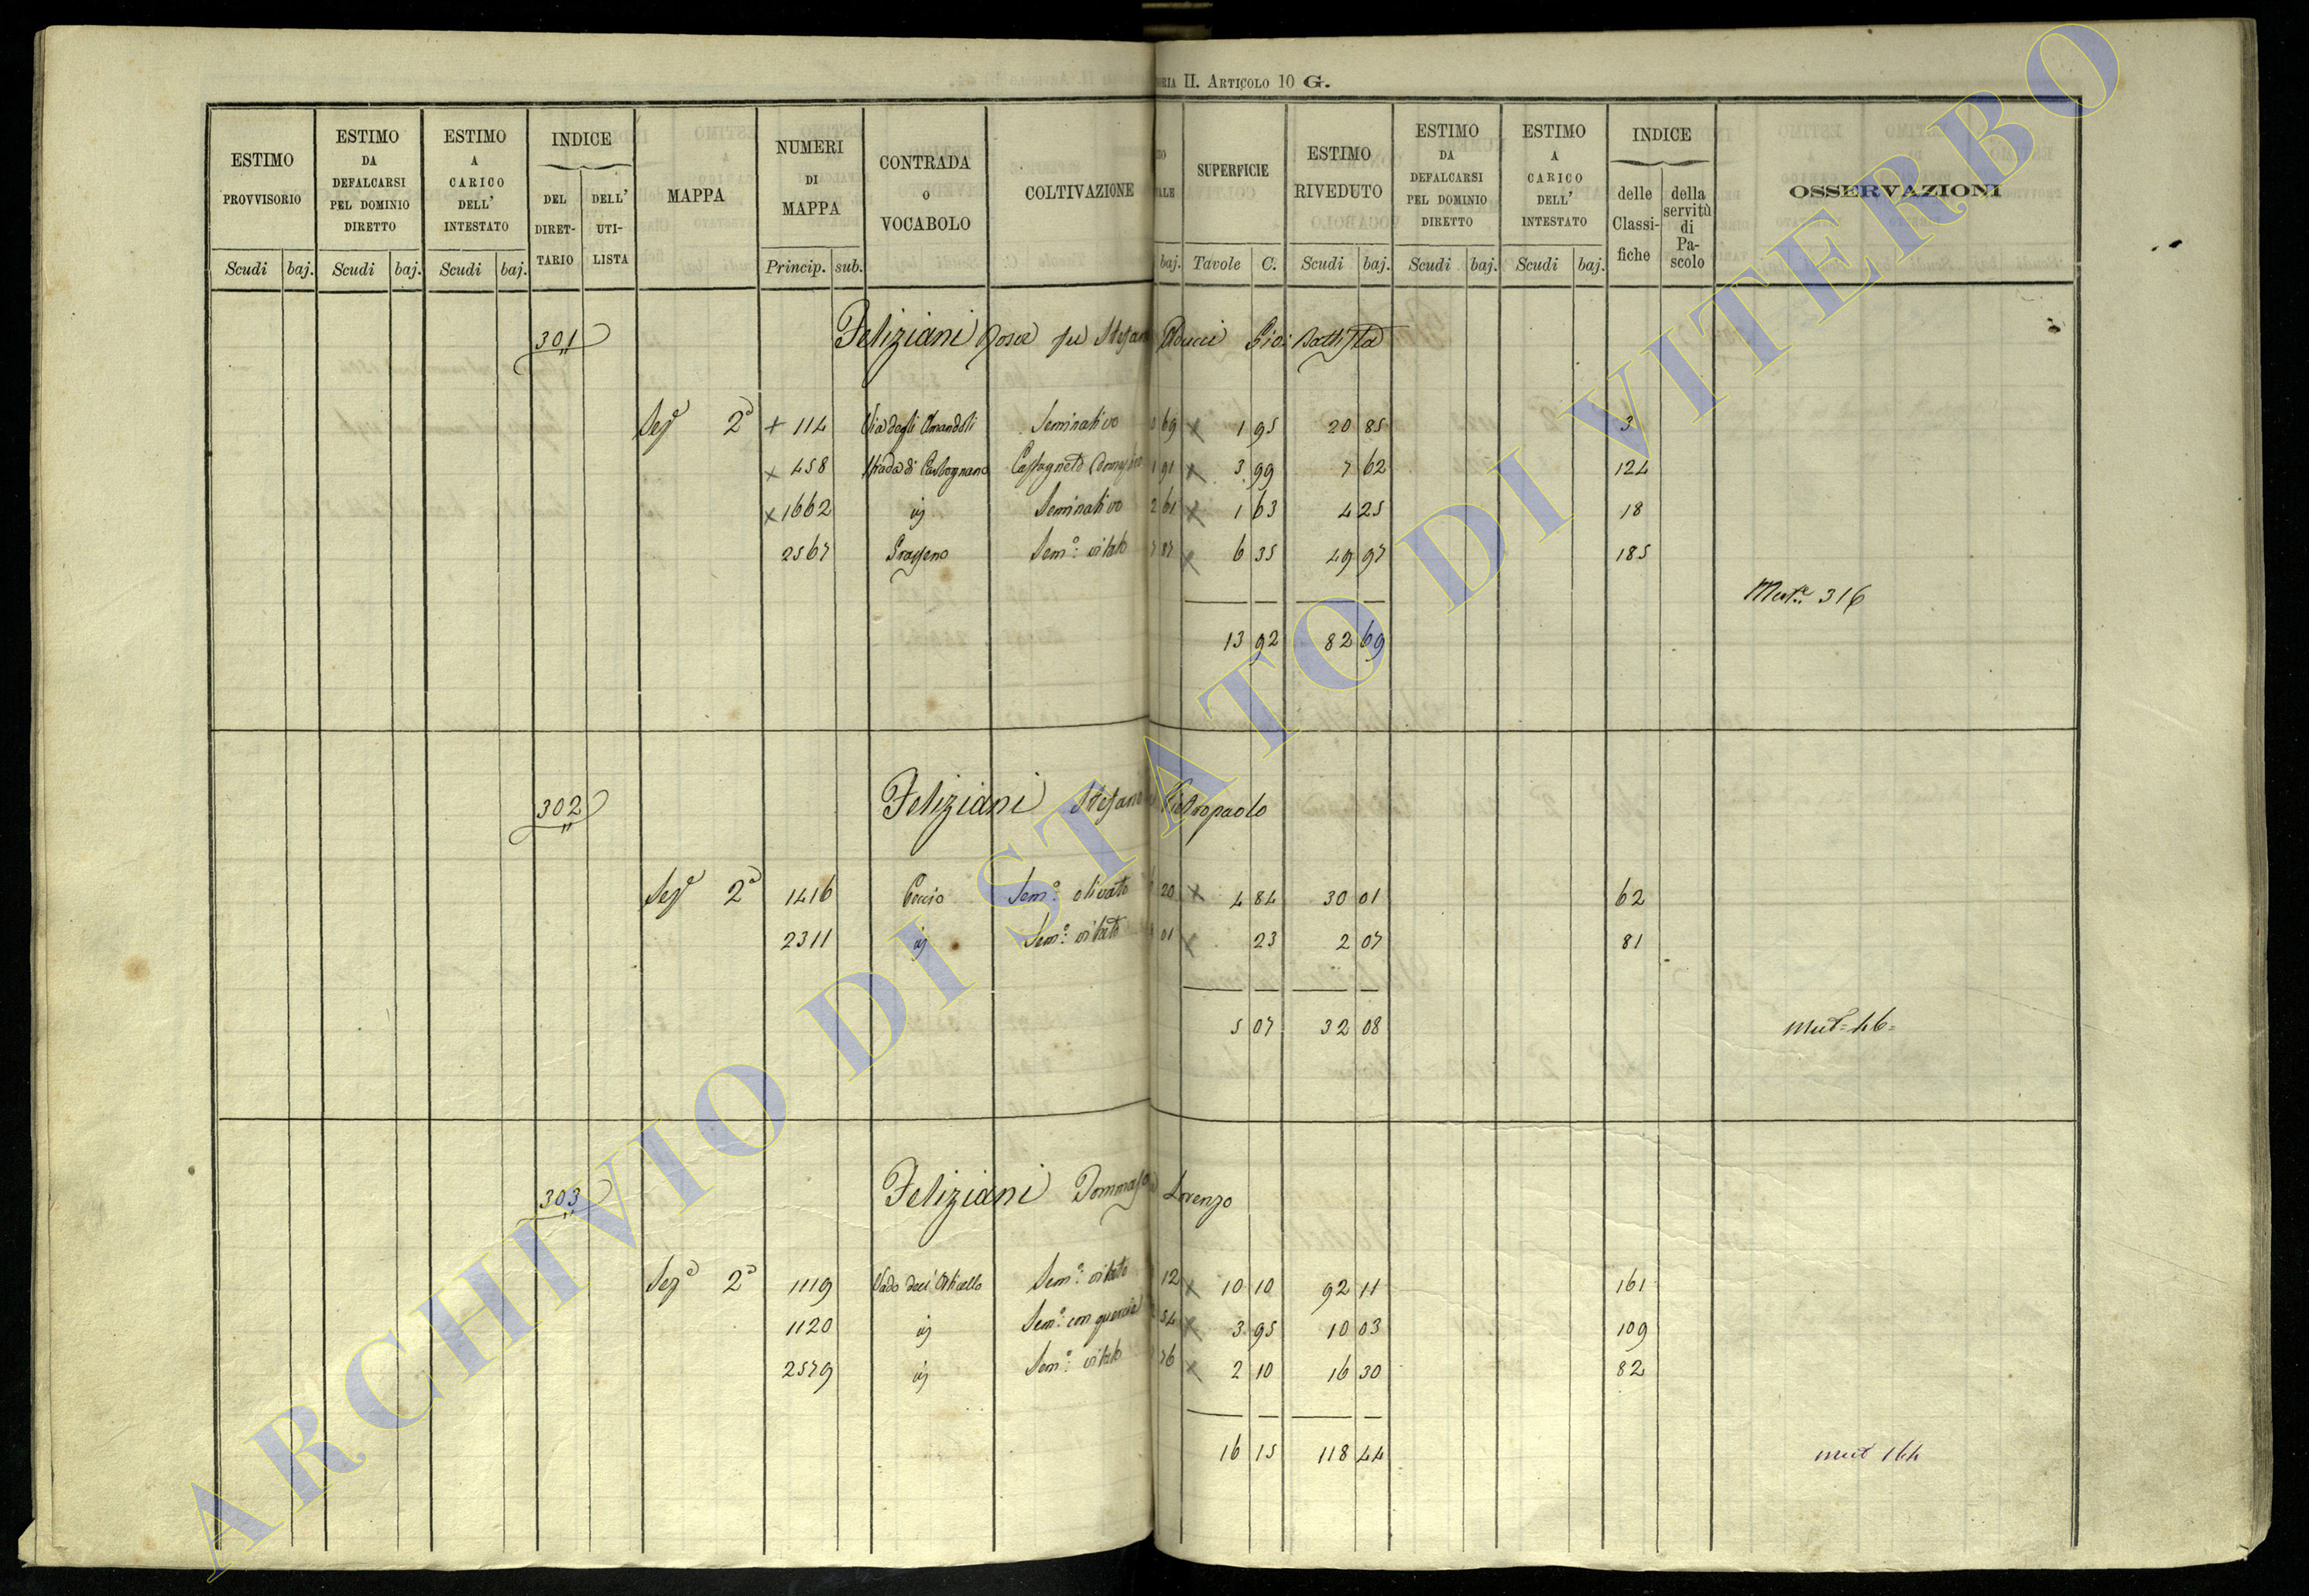 ORIA II. ARTICOLO 10 G.
ESTIMO PROVVISORIO
ESTIMO DA DEFALCARSI PEL DOMINIO DIRETTO
ESTIMO A CARICO DELL' INTESTATO
INDICE
DEL DIRETTARIO
DELL' UTILISTA
MAPPA
NUMERI DI MAPPA
CONTRADA O VOCABOLO
COLTIVAZIONE
SUPERFICIE
ESTIMO RIVEDUTO
ESTIMO DA DEFALCARSI PEL DOMINIO DIRETTO
ESTIMO A CARICO DELL' INTESTATO
INDICE
delle Classifiche
della servitù di Pascolo
OSSERVAZIONI
Scudi baj. Scudi baj. Scudi baj. Princip. sub. baj. Tavole C. Scudi baj. Scudi baj. Scudi baj.
301 Feliziani Rosa fu Stefano Gio: Battista
Sezᵉ 2ª + 114 Via degli Amandoli Seminativo 69 x 1 95 20 85 3
x 458 Strada di Carbognano Castagneto 1 91 x 3 99 7 62 124
x 1662 ivi Seminativo 2 61 x 1 63 4 25 18
2567 Semº: vitato 7 87 x 6 35 49 97 185
Mutᵉ 316
13 92 82 69
302 Feliziani Stefano Pietropaolo
Sezᵉ 2ª 1416 Semº: olivato 20 x 4 84 30 01 62
2311 ivi Semº: vitato 01 x 23 2 07 81
5 07 32 08 Mut= 46=
303 Feliziani Tommaso Lorenzo
Sezᵉ 2ª 1119 Vado Semº: vitato 12 x 10 10 92 11 161
1120 ivi Semº: con querce 54 x 3 95 10 03 109
2579 ivi Semº: vitato 76 x 2 10 16 30 82
16 15 118 44 mut 164
ARCHIVIO DI STATO DI VITERBO